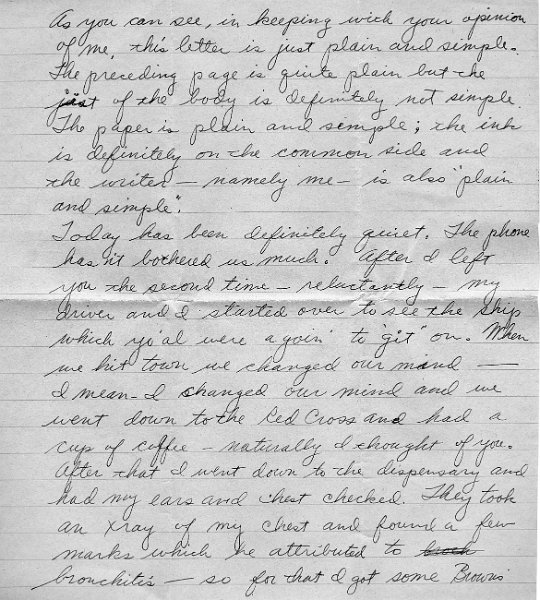 As you can see, in keeping with your opinion
of me, this letter is just plain and simple.
The preceding page is quite plain but the
jist of the body is definitely not simple.
The paper is plain and semple; the ink
is definitely on the common side and
the writer – namely me – is also "plain
and simple".
Today has been definitely quiet. The phone
hasn't bothered us much. After I left
you the second time – reluctantly – my
driver and I started over to see the ship
which yo'al were a goin' to "git" on. When
we hit town we changed our mind —
I mean – I changed our mind and we
went down to the Red Cross and had a
cup of coffie – naturally I thought of you.
After that I went down to the dispensary and
had my ears and chest checked. They took
an Xray of my chest and found a few
marks which he attributed to
bronchitis – so for that I got some Brown's